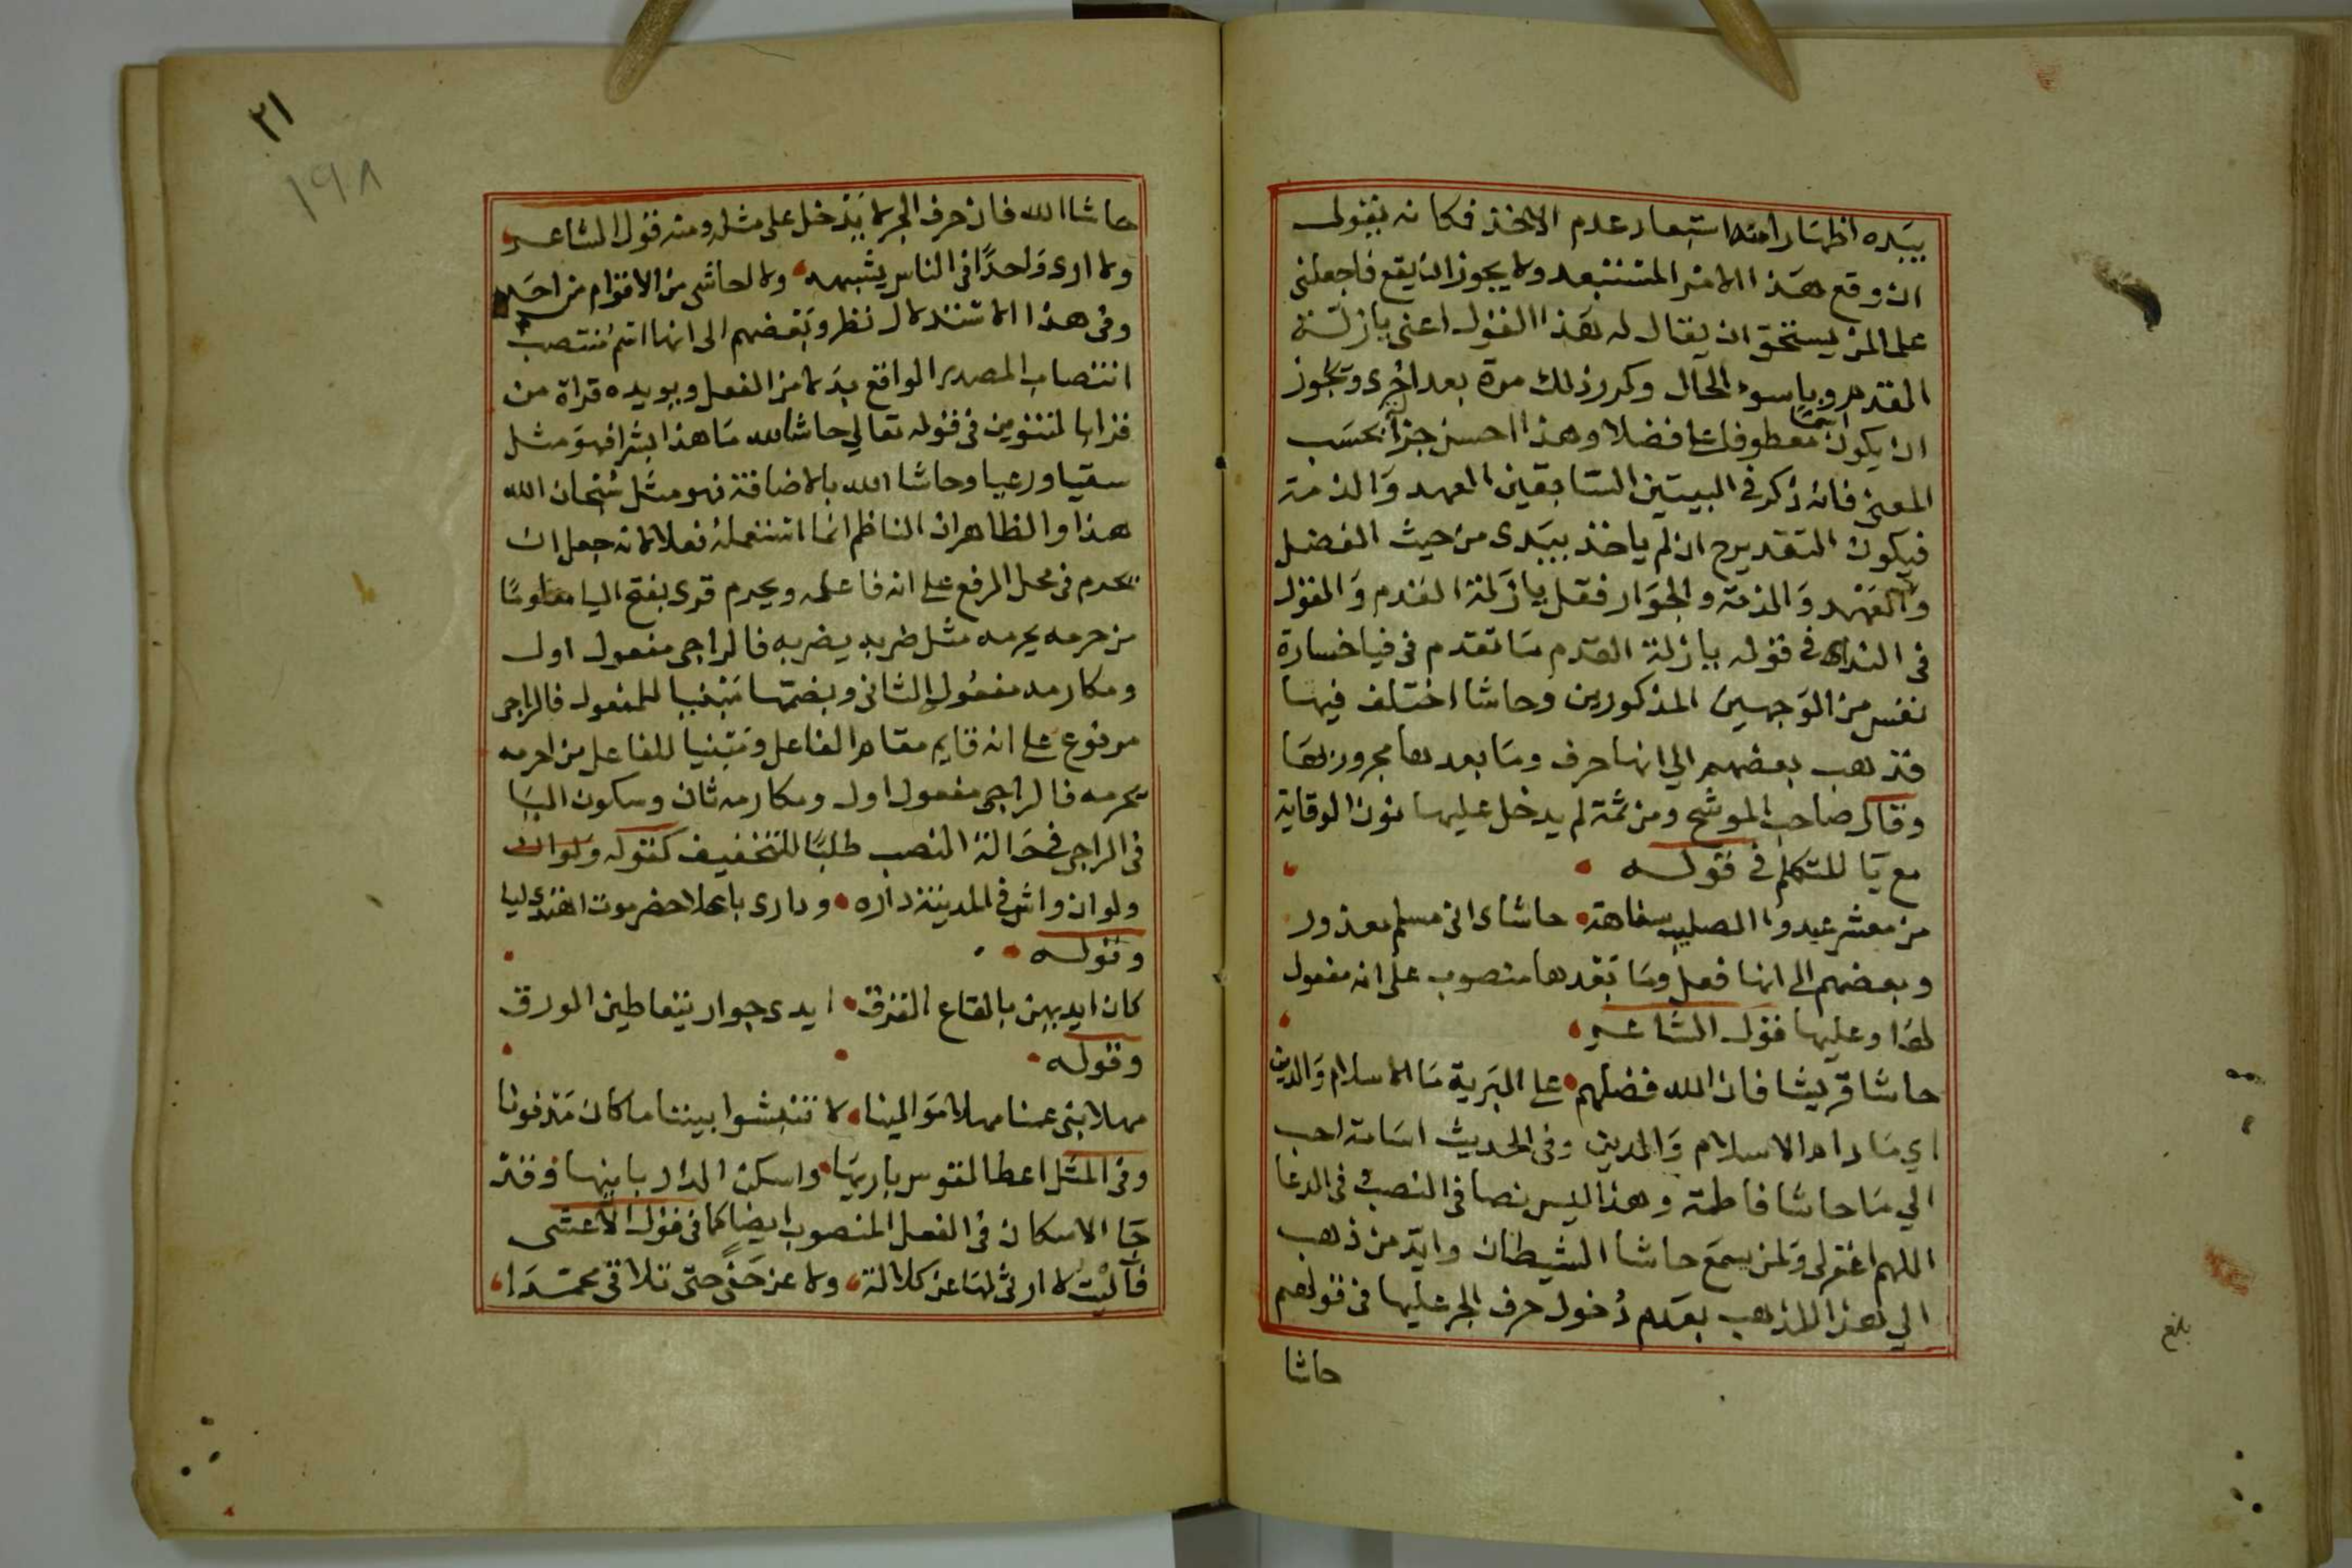 بيده اظهارا منه استبعاد عدم الاخذ فكانه يقول
ان وقع هذا الامر المستبعد ولا يجوز ان يقع فاجعلني
علما لمن يستحق ان يقال له هذا القول اعني يا زلة
القدم ويا سوء الحال وكرر ذلك مرة بعد اخرى ويجوز
ان يكون معطوفا على فضلا وهذا احسن جزأ بحسب
المعنى فانه ذكر في البيتين السابقين العهد والذمة
فيكون التقدير ح ان لم ياخذ بيدى من حيث الفضل
والعهد والذمة والجوار فقل يا زلة القدم والقول
في النداء في قوله يا زلة القدم ما تقدم في فيا خسارة
نفس من الوجهين المذكورين وحاشا اختلف فيها
فذهب بعضهم الي انها حرف وما بعدها مجرور بها
وقال صاحب الموشح ومن ثمة لم يدخل عليها نون الوقاية
مع يا المتكلم في قوله
من معشر عبدوا الصليب سفاهة حاشاى انى مسلم معذور
وبعضهم الى انها فعل وما بعدها منصوب على انه مفعول
لها وعليها قول الشاعر
حاشا قريشا فان الله فضلهم على البرية بالاسلام والدين
اي ما دام الاسلام والدين وفى الحديث اسامة احب
الي ما حاشا فاطمة وهذا ليس نصا فى النصب فى الدعا
اللهم اغفرلى ولمن يسمع حاشا الشيطان وايد من ذهب
الي هذا المذهب بعدم دخول حرف الجر عليها فى قولهم
حاشا
بلغ
٢١
١٩٨
حاشا الله فان حرف الجر لا يدخل على مثله ومنه قول الشاعر
ولا ارى واحدا فى الناس يشبهه ولا احاشى من الاقوام من احد
وفى هذا الاستدلال نظر وبعضهم الى انها اسم منتصب
انتصاب المصدر الواقع بدلا من الفعل ويويده قراة من
قرا بالتنوين فى قوله تعالي حاشا لله ما هذا بشرا فهو مثل
سقيا ورعيا وحاشا الله بالاضافة فهو مثل سبحان الله
هذا والظاهر ان الناظم انما استعمله فعلا لانه جعل ان
يحرم فى محل الرفع على انه فاعله ويحرم قرى بفتح اليا معلوما
من حرمه يحرمه مثل ضربه يضربه فالراجى مفعول اول
ومكارمه مفعول الثانى وبضمها مبنيا للمفعول فالراجى
مرفوع على انه قايم مقام الفاعل ومبنيا للفاعل من احرمه
يحرمه فالراجى مفعول اول ومكارمه ثان وسكون اليا
فى الراجى فى حالة النصب طلبا للتخفيف كقوله ولو ان
ولو ان واش فى المدينة داره ودارى باعلا حضرموت اهتدى ليا
وقوله
كان ايديهن بالقاع القرق ايدى جوار يتعاطين الورق
وقوله
مهلا بنى عمنا مهلا موالينا لا تنبشوا بيننا ما كان مدفونا
وفى المثل اعط القوس باريها واسكن الدار بانيها وقد
جا الاسكان فى الفعل المنصوب ايضا كما فى قول الاعشى
فآليت لا ارثى لها عن كلالة ولا عن حفى حتى تلاقى محمدا